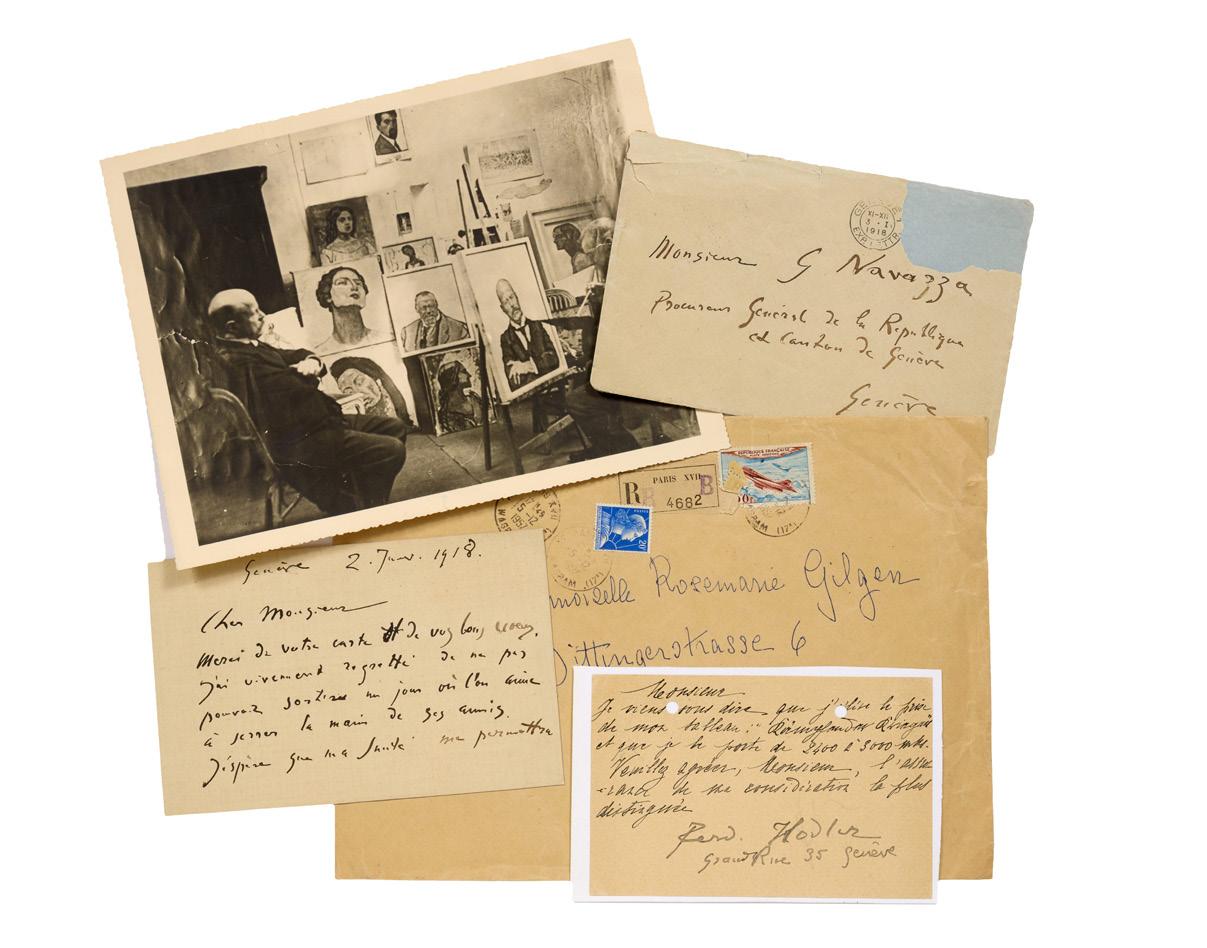 GENÈVE 1
XI-XII
3 · I
1918
EXP. LETTR
Monsieur G Navazza
Procureur Général de la Republique
et Canton de Genève
Genève
REPUBLIQUE FRANÇAISE
R
PARIS XVII
B
4682
20F
moiselle Rosemarie Gilgen
ittingerstrasse 6
Genève 2. Janv. 1918.
Cher Monsieur
Merci de votre carte et de vos bons voeux.
j'ai vivement regretté de ne pas
pouvoir sortir un jour où l'on aime
à serrer la main de ses amis.
J'éspère que ma Santé me permettra
Monsieur
Je viens vous dire, que j'élève le prix
de mon tableau:
et que je le porte de 2400 à 3000 mks.
Veuillez agréer, Monsieur, l'assu
-rance de ma considération la plus
distinguée
Ferd. Hodler
Grand Rue 35 Genève